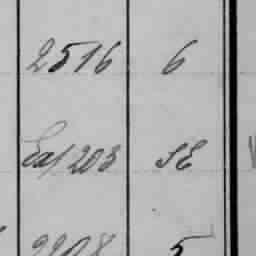 2516 6
Ea/203 SE
2208 5